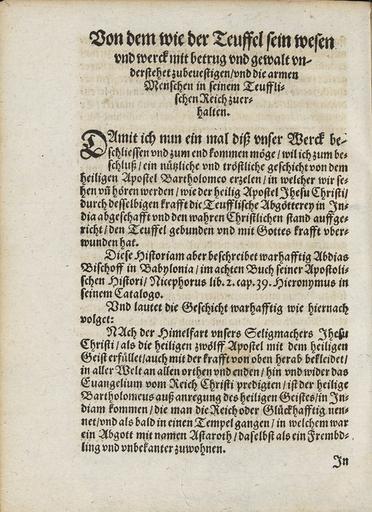 Von dem wie der Teuffel sein wesen
vnd werck mit betrug vnd gewalt vn-
derstehet zubeuestigen/vnd die armen
Menschen in seinem Teuffli-
schen Reich zuer-
halten.
DAmit ich nun ein mal diß vnser Werck be-
schliessen vnd zum end kommen möge/wil ich zum be-
schluß/ein nützliche vnd tröstliche geschicht von dem
heiligen Apostel Bartholomeo erzelen/in welcher wir se-
hen vñ hören werden/wie der heilig Apostel Jhesu Christi/
durch desselbigen krafft die Teufflische Abgötterey in In-
dia abgeschafft vnd den wahren Christlichen stand auffge-
richt/den Teuffel gebunden vnd mit Gottes krafft vber-
wunden hat.
Diese Historiam aber beschreibet warhafftig Abdias
Bischoff in Babylonia/im achten Buch seiner Apostoli-
schen Histori/Nicephorus lib. 2. cap. 39. Hieronymus in
seinem Catalogo.
Vnd lautet die Geschicht warhafftig wie hiernach
volget:
NAch der Himelfart vnsers Seligmachers Jhesu
Christi/als die heiligen zwölff Apostel mit dem heiligen
Geist erfüllet/auch mit der krafft von oben herab bekleidet/
in aller Welt an allen orthen vnd enden/hin vnd wider das
Euangelium vom Reich Christi predigten/ist der heilige
Bartholomeus auß anregung des heiligen Geistes/in In-
diam kommen/die man die Reich oder Glückhafftig nen-
net/vnd als bald in einen Tempel gangen/in welchem war
ein Abgott mit namen Astaroth/daselbst als ein Frembd-
ling vnd vnbekanter zuwohnen.
In